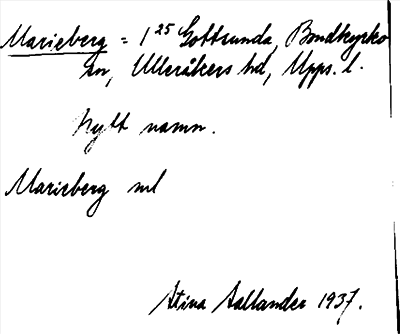 Marieberg = 1²⁵ Gottsunda, Bondkyrko
sn, Ulleråkers hd, Upps. l.
Nytt namn.
Marieberg ml
Stina Aallander 1937.